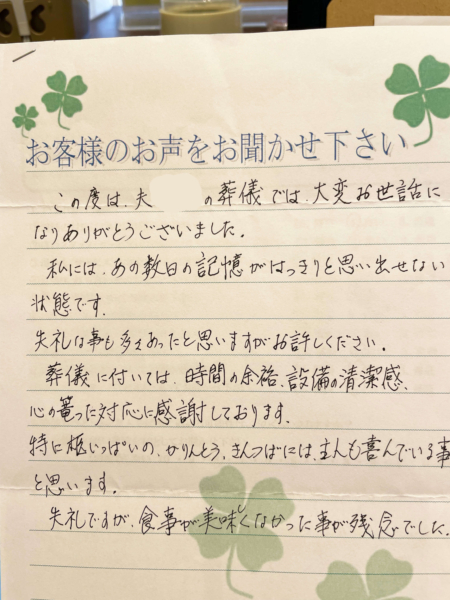 お客様のお声をお聞かせ下さい
この度は、夫 の葬儀では、大変お世話に
なりありがとうございました。
私には、あの数日の記憶がはっきりと思い出せない
状態です。
失礼な事も多々あったと思いますがお許しください。
葬儀に付いては、時間の余裕、設備の清潔感、
心の篭った対応に感謝しております。
特に柩いっぱいの、かりんとう、きんつばには、主人も喜んでいる事
と思います。
失礼ですが、食事が美味しくなかった事が残念でした。